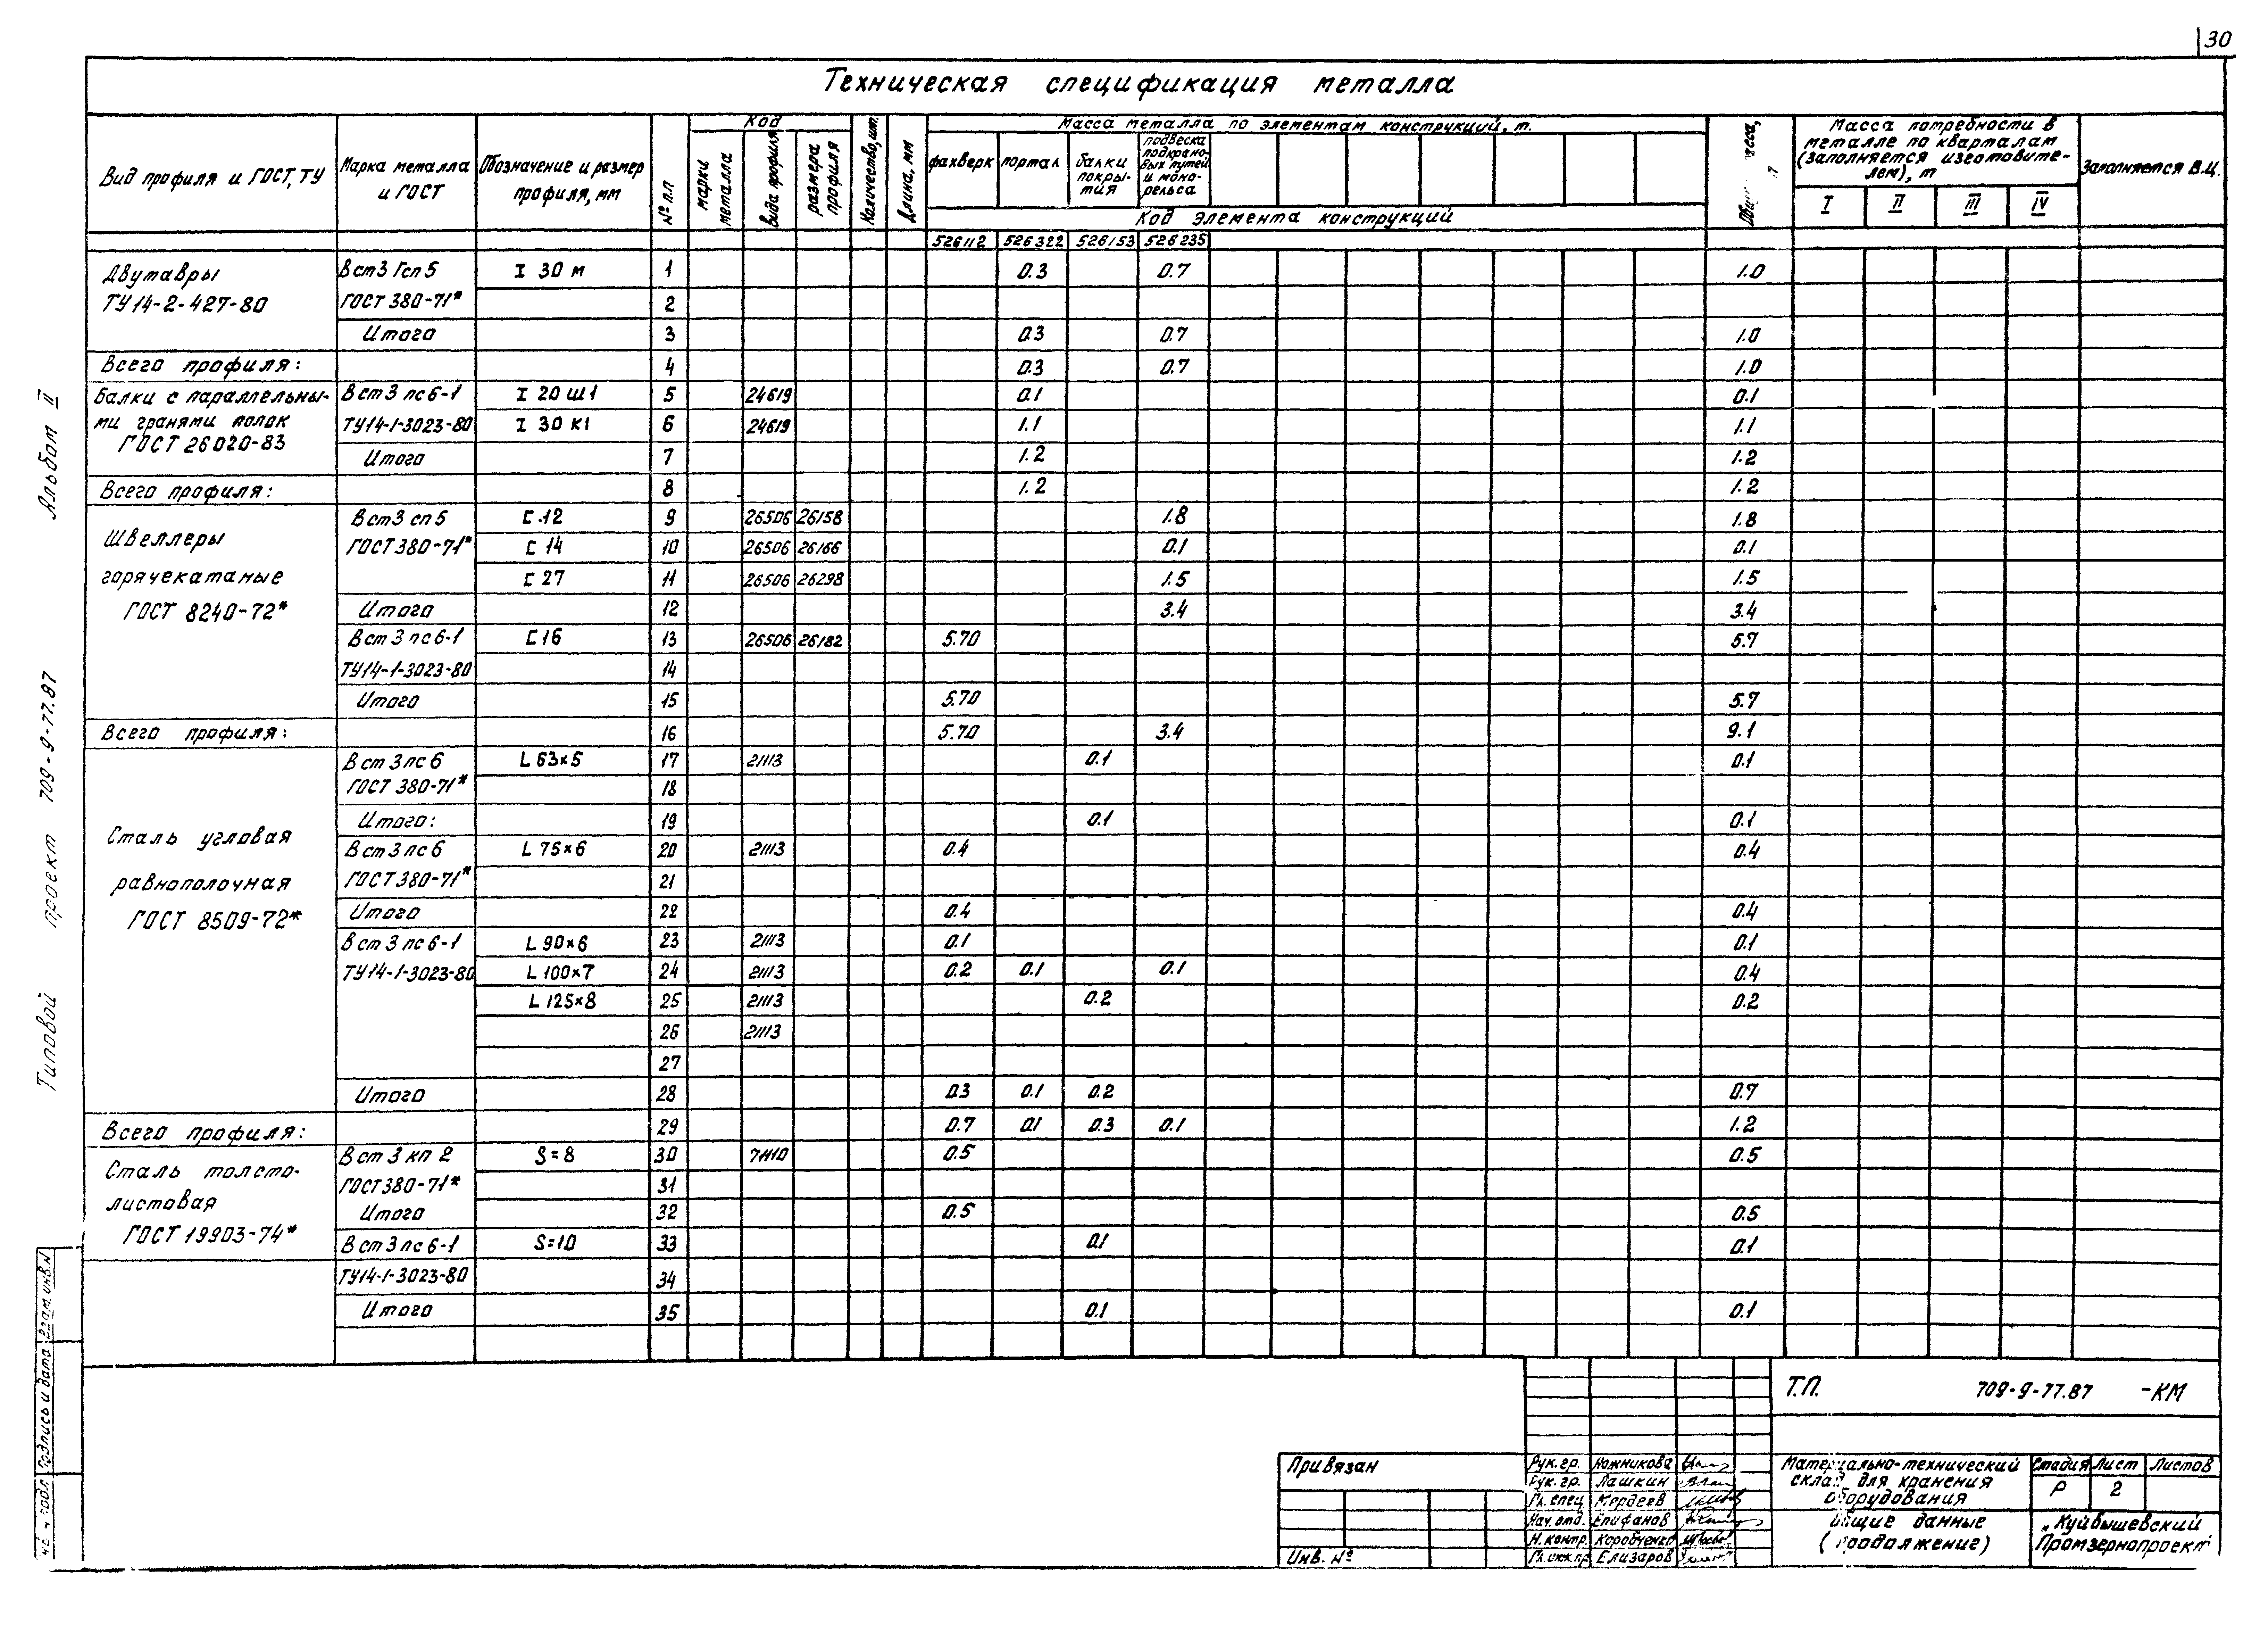 30
Техническая спецификация металла
Вид профиля и ГОСТ, ТУ
Марка металла и ГОСТ
Обозначение и размер профиля, мм
№ п.п
Код
марки металла
вида профиля
размера профиля
Количество, шт.
Длина, мм
Масса металла по элементам конструкций, т.
фахверк
портал
балки покры-
тия
подвеска
подкрано-
вых путей
и моно-
рельса
Код элемента конструкций
526112 526322 526153 526235
Масса потребности в
металле по кварталам
(заполняется изготовите-
лем), т
I II III IV
Заполняется В.Ц.
Двутавры
ТУ 14-2-427-80
В ст3 Гсп 5 I 30 м 1 0.3 0.7 1.0
ГОСТ 380-71* 2
Итого 3 0.3 0.7 1.0
Всего профиля: 4 0.3 0.7 1.0
Балки с параллельны-
ми гранями полок
ГОСТ 26020-83
В ст 3 пс 6-1 I 20 Ш1 5 24619 0.1 0.1
ТУ14-1-3023-80 I 30 К1 6 24619 1.1 1.1
Итого 7 1.2 1.2
Всего профиля: 8 1.2 1.2
Швеллеры
горячекатаные
ГОСТ 8240-72*
В ст3 сп 5 С 12 9 26506 26158 1.8 1.8
ГОСТ 380-71* С 14 10 26506 26166 0.1 0.1
С 27 11 26506 26298 1.5 1.5
Итого 12 3.4 3.4
В ст 3 пс 6-1 С 16 13 26506 26182 5.70 5.7
ТУ14-1-3023-80 14
Итого 15 5.70 5.7
Всего профиля: 16 5.70 3.4 9.1
Сталь угловая
равнополочная
ГОСТ 8509-72*
В ст 3 пс 6 L 63×5 17 21113 0.1 0.1
ГОСТ 380-71* 18
Итого: 19 0.1 0.1
В ст 3 пс 6 L 75×6 20 21113 0.4 0.4
ГОСТ 380-71* 21
Итого 22 0.4 0.4
В ст 3 пс 6-1 L 90×6 23 21113 0.1 0.1
ТУ14-1-3023-80 L 100×7 24 21113 0.2 0.1 0.1 0.4
L 125×8 25 21113 0.2 0.2
26 21113
27
Итого 28 0.3 0.1 0.2 0.7
Всего профиля: 29 0.7 0.1 0.3 0.1 1.2
Сталь толсто-
листовая
ГОСТ 19903-74*
В ст 3 кп 2 S=8 30 71110 0.5 0.5
ГОСТ 380-71* 31
Итого 32 0.5 0.5
В ст 3 пс 6-1 S=10 33 0.1 0.1
ТУ14-1-3023-80 34
Итого 35 0.1 0.1
Альбом II
Типовой проект 709-9-77.87
Взам. инв. N
Подпись и дата
Т.П. 709-9-77.87 -КМ
Привязан
Инв. №
Рук. гр. Ножникова
Рук. гр. Лашкин
Гл. спец Мердеев
Нач. отд. Епифанов
Н. контр. Коробченко
Гл. инж. пр Елизаров
Материально-технический
склад для хранения
оборудования
Общие данные
(продолжение)
Стадия Лист Листов
Р 2
„Куйбышевский
Промзернопроект"